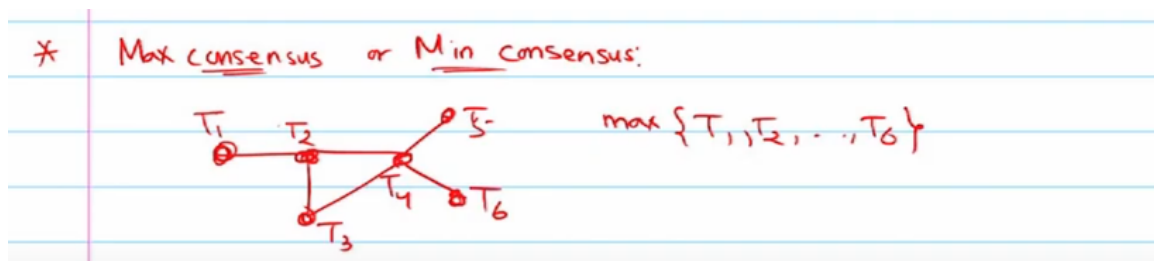 * Max consensus or Min consensus:
T1 T2 T5 max {T1, T2, ..., T6}
T4 T6
T3